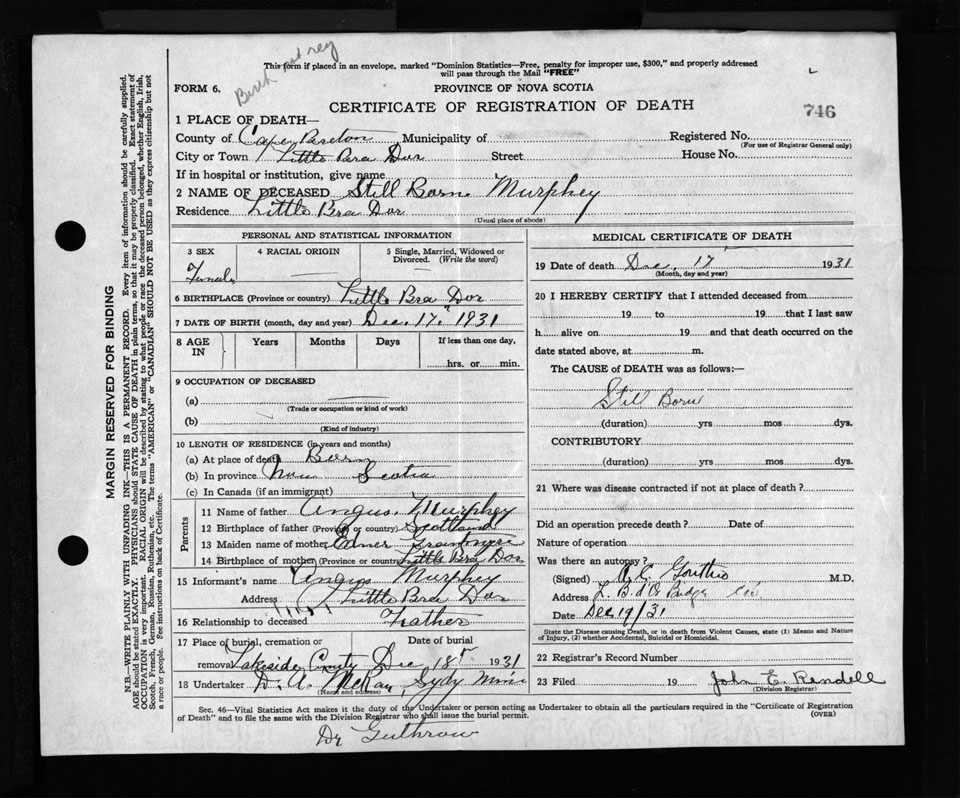 Birth
This form if placed in an envelope, marked "Dominion Statistics—Free, penalty for improper use, $300," and properly addressed
will pass through the Mail "FREE"
FORM 6.
PROVINCE OF NOVA SCOTIA
CERTIFICATE OF REGISTRATION OF DEATH
746
1 PLACE OF DEATH—
County of Cape Breton Municipality of Registered No.
(For use of Registrar General only)
City or Town Little Bra Dor Street House No.
If in hospital or institution, give name
2 NAME OF DECEASED Still Born Murphey
Residence Little Bra Dor
(Usual place of abode)
PERSONAL AND STATISTICAL INFORMATION
3 SEX 4 RACIAL ORIGIN 5 Single, Married, Widowed or
Divorced. (Write the word)
Female
6 BIRTHPLACE (Province or country) Little Bra Dor
7 DATE OF BIRTH (month, day and year) Dec. 17. 1931
8 AGE IN Years Months Days If less than one day,
hrs. or min.
9 OCCUPATION OF DECEASED
(a)
(Trade or occupation or kind of work)
(b)
(Kind of industry)
10 LENGTH OF RESIDENCE (in years and months)
(a) At place of death Born
(b) In province Nova Scotia
(c) In Canada (if an immigrant)
Parents
11 Name of father Angus Murphey
12 Birthplace of father (Province or country) Scotland
13 Maiden name of mother
14 Birthplace of mother (Province or country) Little Bra Dor
15 Informant's name Angus Murphey
Address Little Bra Dor
16 Relationship to deceased Father
17 Place of burial, cremation or Date of burial
removal Lakeside Dec 18 1931
18 Undertaker D. A. McRae, Sydy Mines
(Name and address)
MEDICAL CERTIFICATE OF DEATH
19 Date of death Dec. 17 1931
(Month, day and year)
20 I HEREBY CERTIFY that I attended deceased from
19 to 19 that I last saw
h alive on 19 and that death occurred on the
date stated above, at m.
The CAUSE of DEATH was as follows:—
Still Born
(duration) yrs mos dys.
CONTRIBUTORY
(duration) yrs mos dys.
21 Where was disease contracted if not at place of death?
Did an operation precede death? Date of
Nature of operation
Was there an autopsy?
(Signed) M.D.
Address
Date Dec 19/31
State the Disease causing Death, or in death from Violent Causes, state (1) Means and Nature
of Injury, (2) whether Accidental, Suicidal or Homicidal.
22 Registrar's Record Number
23 Filed 19 John E. Rendell
(Division Registrar)
Sec. 46—Vital Statistics Act makes it the duty of the Undertaker or person acting as Undertaker to obtain all the particulars required in the "Certificate of Registration
of Death" and to file the same with the Division Registrar who shall issue the burial permit. (OVER)
Dr Guthrow
MARGIN RESERVED FOR BINDING
N.B.—WRITE PLAINLY WITH UNFADING INK—THIS IS A PERMANENT RECORD. Every item of information should be carefully supplied.
AGE should be stated EXACTLY. PHYSICIANS should STATE CAUSE OF DEATH in plain terms, so that it may be properly classified. Exact statement of
OCCUPATION is very important. RACIAL ORIGIN will be described by stating to what people or race the deceased person belonged, whether English, Irish,
Scotch, French, German, Russian, Ruthenian, etc. The terms "AMERICAN" or "CANADIAN" SHOULD NOT BE USED as they express citizenship but not
a race or people. See instructions on back of Certificate.